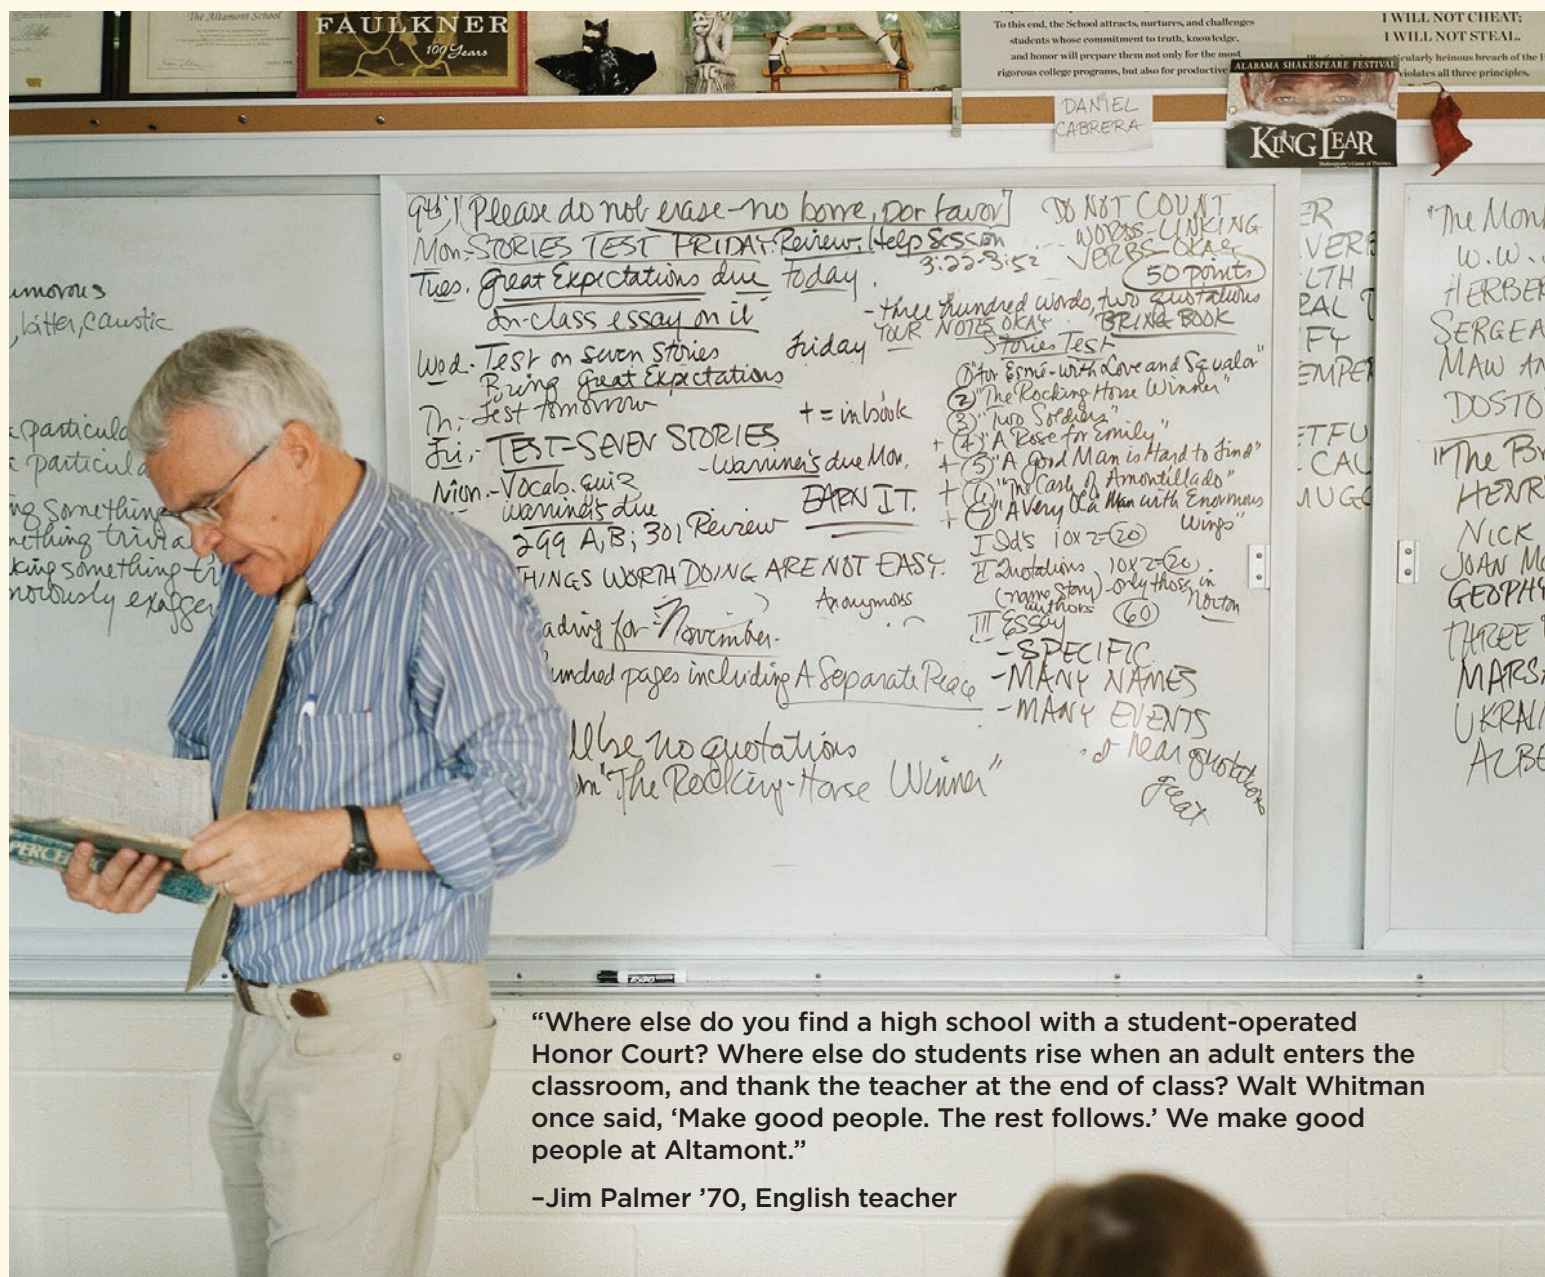 The Altamont School
FAULKNER
100 Years
To this end, the School attracts, nurtures, and challenges
students whose commitment to truth, knowledge,
and honor will prepare them not only for the most
rigorous college programs, but also for productive
I WILL NOT CHEAT;
I WILL NOT STEAL.
cularly heinous breach of the
violates all three principles.
DANIEL
CABRERA
ALABAMA SHAKESPEARE FESTIVAL
KING LEAR
umorous
, bitter, caustic
particula
particula
ng something
mething trivia
king something tr
morously exagger
9th, [Please do not erase-no borre, por favor]
Mon.-STORIES TEST FRIDAY. Review, Help Session
3:22-3:52
Tues. Great Expectations due today.
In-class essay on it
Wed. Test on seven stories
Friday
Bring Great Expectations
Th.- Test tomorrow
+ = in book
Fri.- TEST=SEVEN STORIES
-Warriner's due Mon.
Mon.-Vocab. quiz
EARN IT.
Warriner's due
299 A,B; 301 Review
THINGS WORTH DOING ARE NOT EASY.
Anonymous
ading for November.
undred pages including A Separate Peace
ll be no quotations
om "The Rocking-Horse Winner"
DO NOT COUNT
WORDS-LINKING
VERBS-OKAY
50 points
-three hundred words, two quotations
YOUR NOTES OKAY BRING BOOK
Stories Test
① "For Esmé-with Love and Squalor"
② "The Rocking Horse Winner"
③ "Two Soldiers"
+ ④ "A Rose for Emily"
+ ⑤ "A Good Man is Hard to Find"
+ ⑥ "The Cask of Amontillado"
+ ⑦ "A Very Old Man with Enormous
Wings"
I Id's 10x2=20
II Quotations 10x2=20
(name story) -only those in
authors Norton
III Essay 60
-SPECIFIC
-MANY NAMES
-MANY EVENTS
near quotations
great
ER
VER
LTH
RAL
FY
EMPE
ETFU
CAL
MUGG
"The Mon
W.W.
HERBE
SERGEA
MAW AN
DOSTO
"The Br
HENR
NICK
JOAN MO
GEOPHY
THREE
MARSH
UKRAI
ALBE
PERC
EXPO
“Where else do you find a high school with a student-operated
Honor Court? Where else do students rise when an adult enters the
classroom, and thank the teacher at the end of class? Walt Whitman
once said, ‘Make good people. The rest follows.’ We make good
people at Altamont.”
–Jim Palmer ’70, English teacher